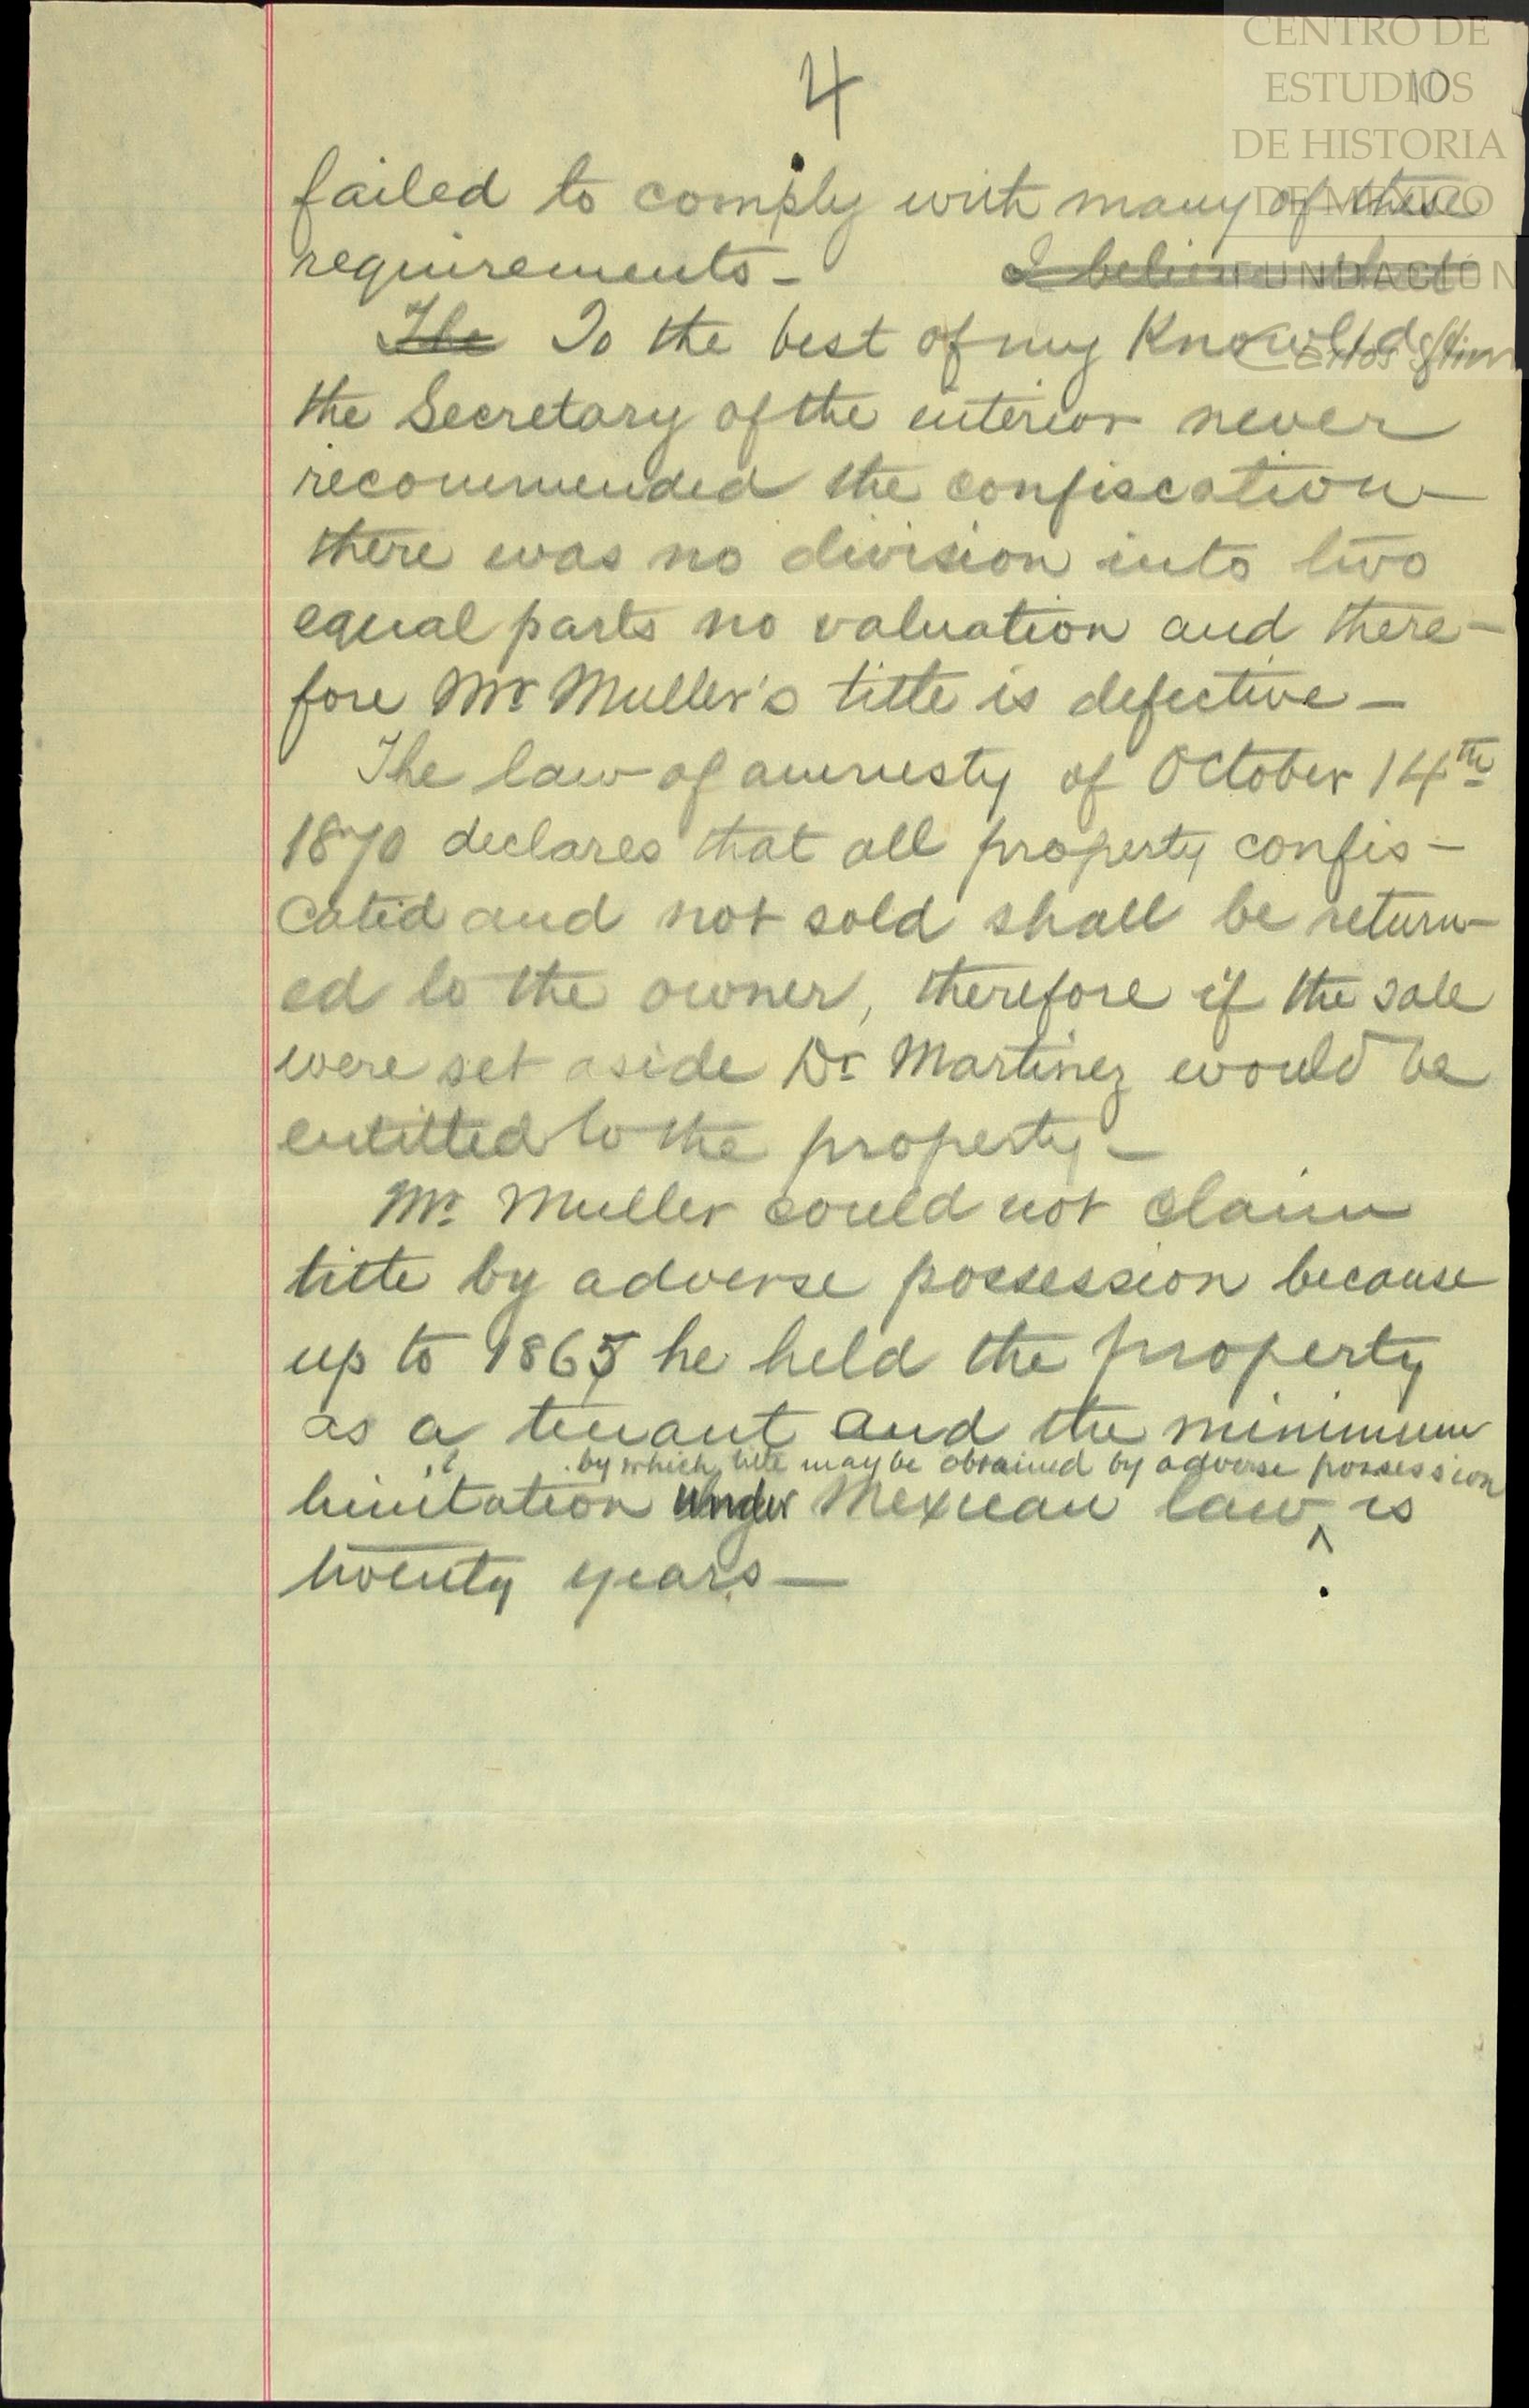 CENTRO DE
ESTUDIOS
DE HISTORIA
DE MÉXICO
FUNDACIÓN
Carlos Slim
4
10
failed to comply with many of these
requirements – I believe that
The To the best of my Knowledge
the Secretary of the interior never
recommended the confiscation –
there was no division into two
equal parts no valuation and there-
fore Mr Muller's title is defective –
The law of amnesty of October 14th
1870 declares that all property confis-
cated and not sold shall be return-
ed to the owner, therefore if the sale
were set aside Dr Martinez would be
entitled to the property –
Mr. Muller could not claim
title by adverse possession because
up to 1865 he held the property
as a tenant and the minimum
by which title may be obtained by adverse possession
limitation under Mexican law ^ is
twenty years –